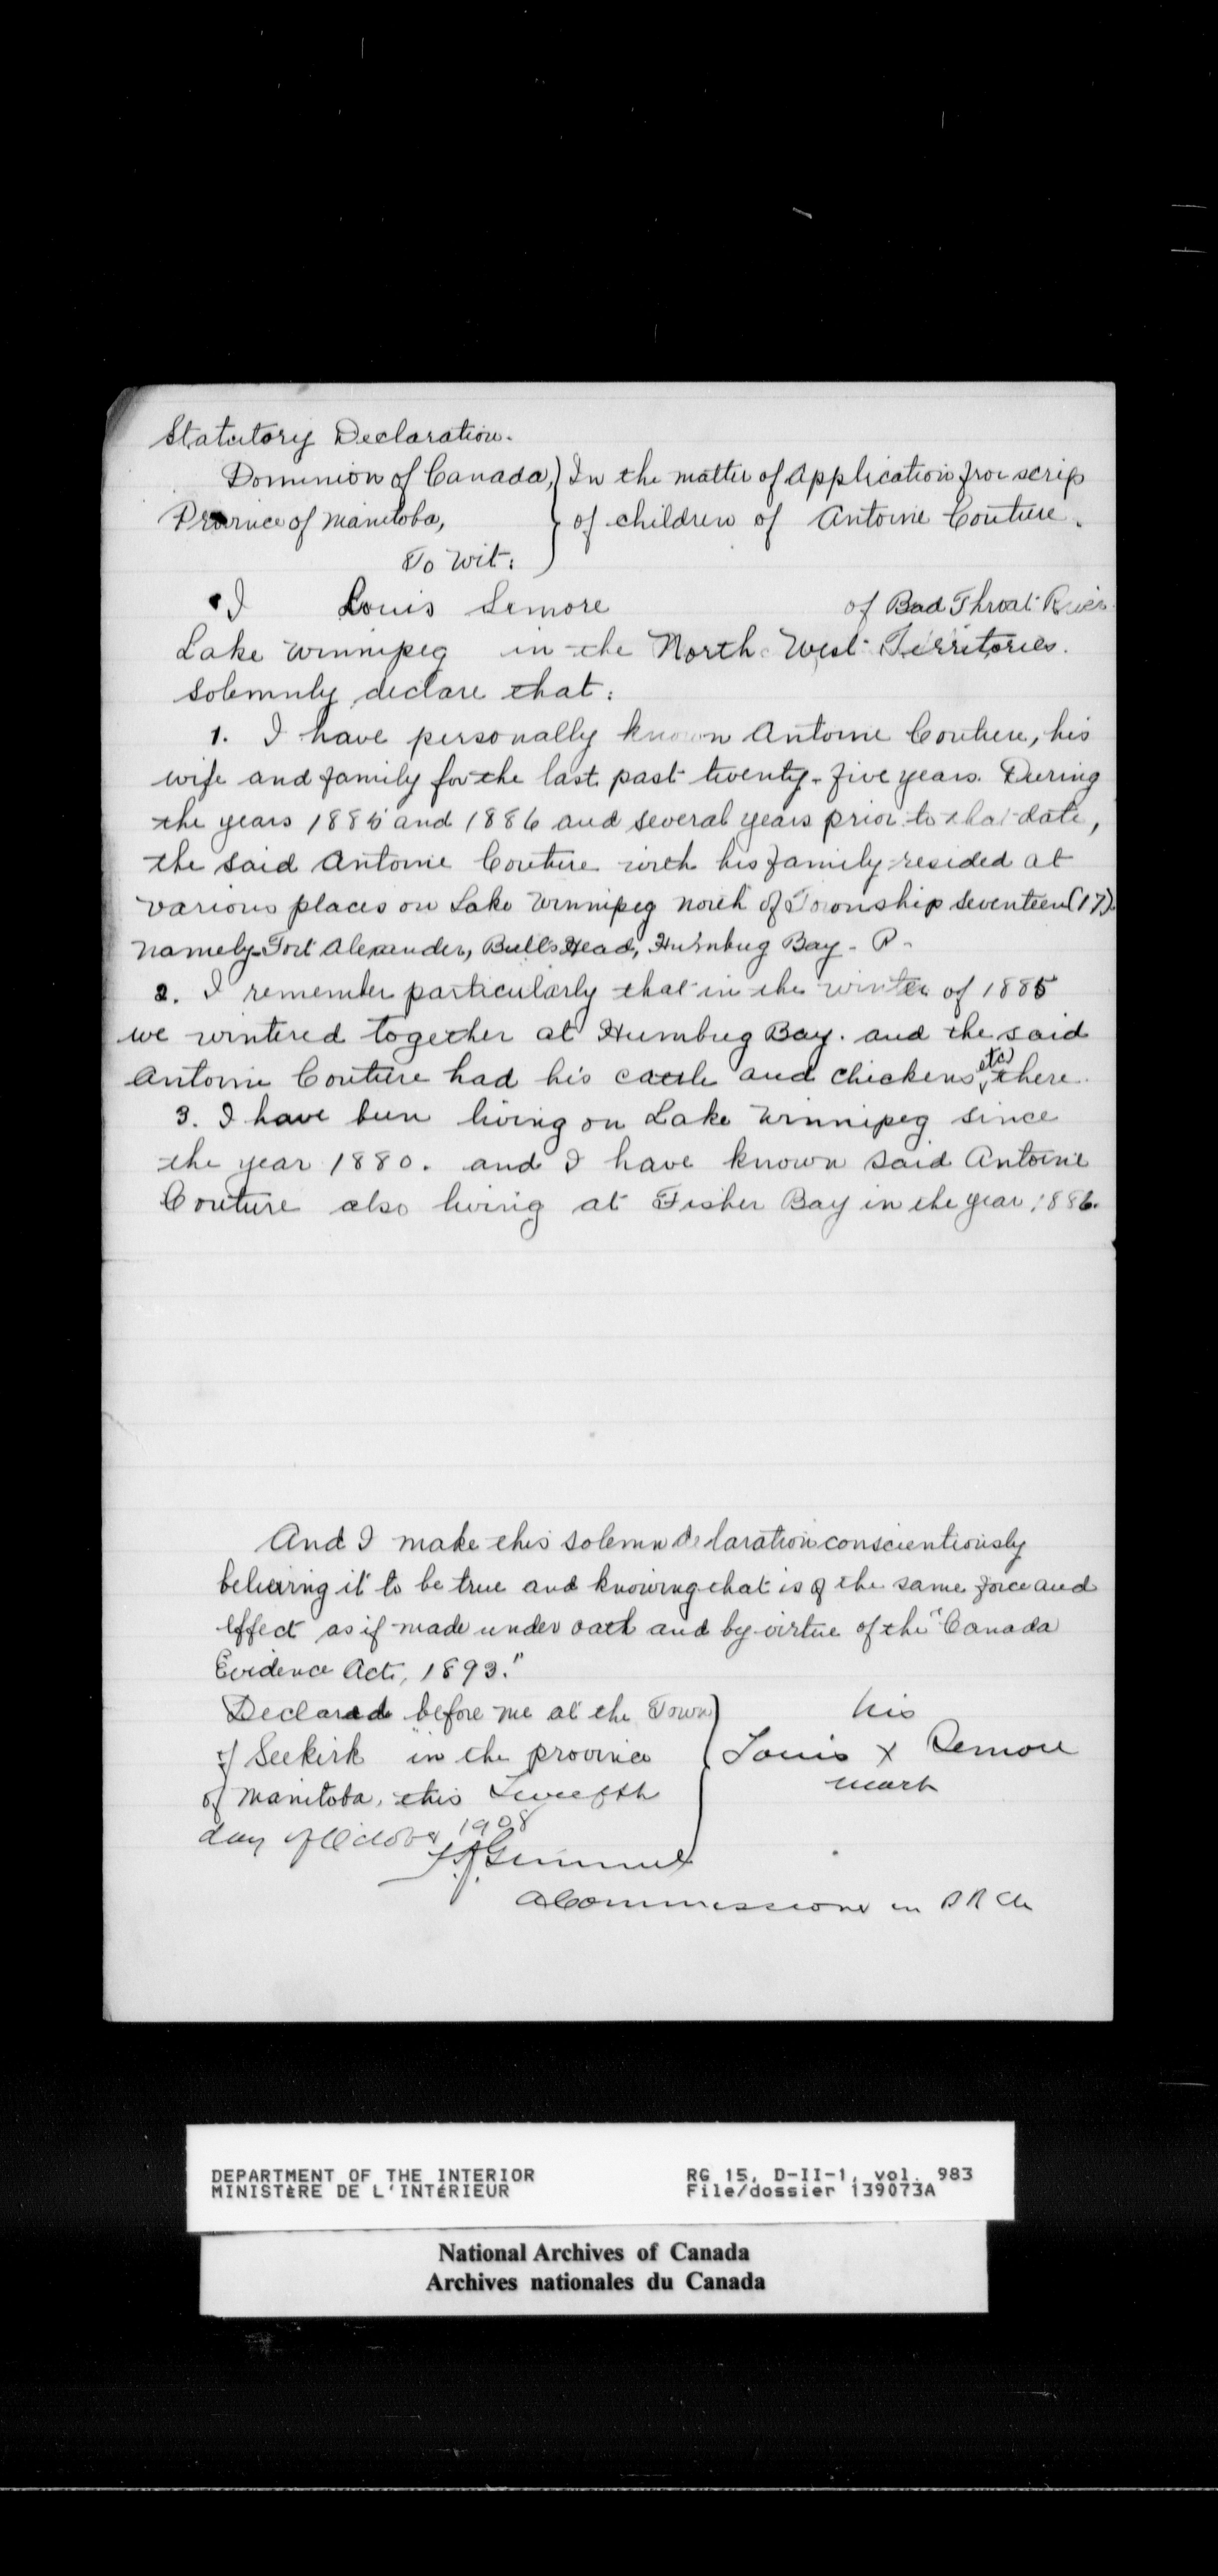 Statutory Declaration.
Dominion of Canada, } In the matter of Application for scrip
Province of Manitoba, } of children of Antoine Couture.
To Wit: }
I Louis Simore of Bad Throat River
Lake Winnipeg in the North West Territories.
solemnly declare that:
1. I have personally known Antoine Couture, his
wife and family for the last past twenty-five years. During
the years 1885 and 1886 and several years prior to that date,
the said Antoine Couture with his family resided at
various places on Lake Winnipeg north of Township seventeen (17)
namely Fort Alexander, Bulls Head, Humbug Bay -
2. I remember particularly that in the winter of 1885
we wintered together at Humbug Bay. and the said
Antoine Couture had his cattle and chickens, etc, there.
3. I have been living on Lake Winnipeg since
the year 1880. and I have known said Antoine
Couture also living at Fisher Bay in the year 1886.
And I make this solemn declaration conscientiously
believing it to be true and knowing that is of the same force and
effect as if made under oath and by virtue of the "Canada
Evidence Act, 1893."
Declared before me at the Town } his
of Seekirk in the province } Louis X
of Manitoba, this Twelfth } mark
day of October 1908
A Commissioner in
DEPARTMENT OF THE INTERIOR RG 15, D-II-1, vol. 983
MINISTÈRE DE L'INTÉRIEUR File/dossier 139073A
National Archives of Canada
Archives nationales du Canada